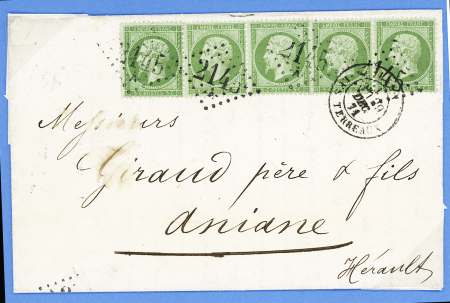 EMPIRE FRANC. EMPIRE FRANC. EMPIRE FRANC. EMPIRE FRANC. EMPIRE FRANC.
2145 2145 2145
TERREAUX
Messieurs
Giraud père & fils
aniane
Hérault